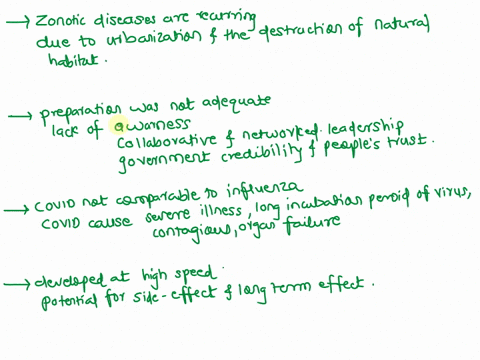 → Zonotic diseases are recurring
due to urbanization & the destruction of natural
habitat.
→ preparation was not adequate
lack of awarness
collaborative & networked leadership
government credibility & people's trust.
→ COVID not comparable to influenza
COVID cause severe illness, long incubation peroid of virus,
contagious, organ failure
→ developed at high speed.
potential for side-effect & long term effect.